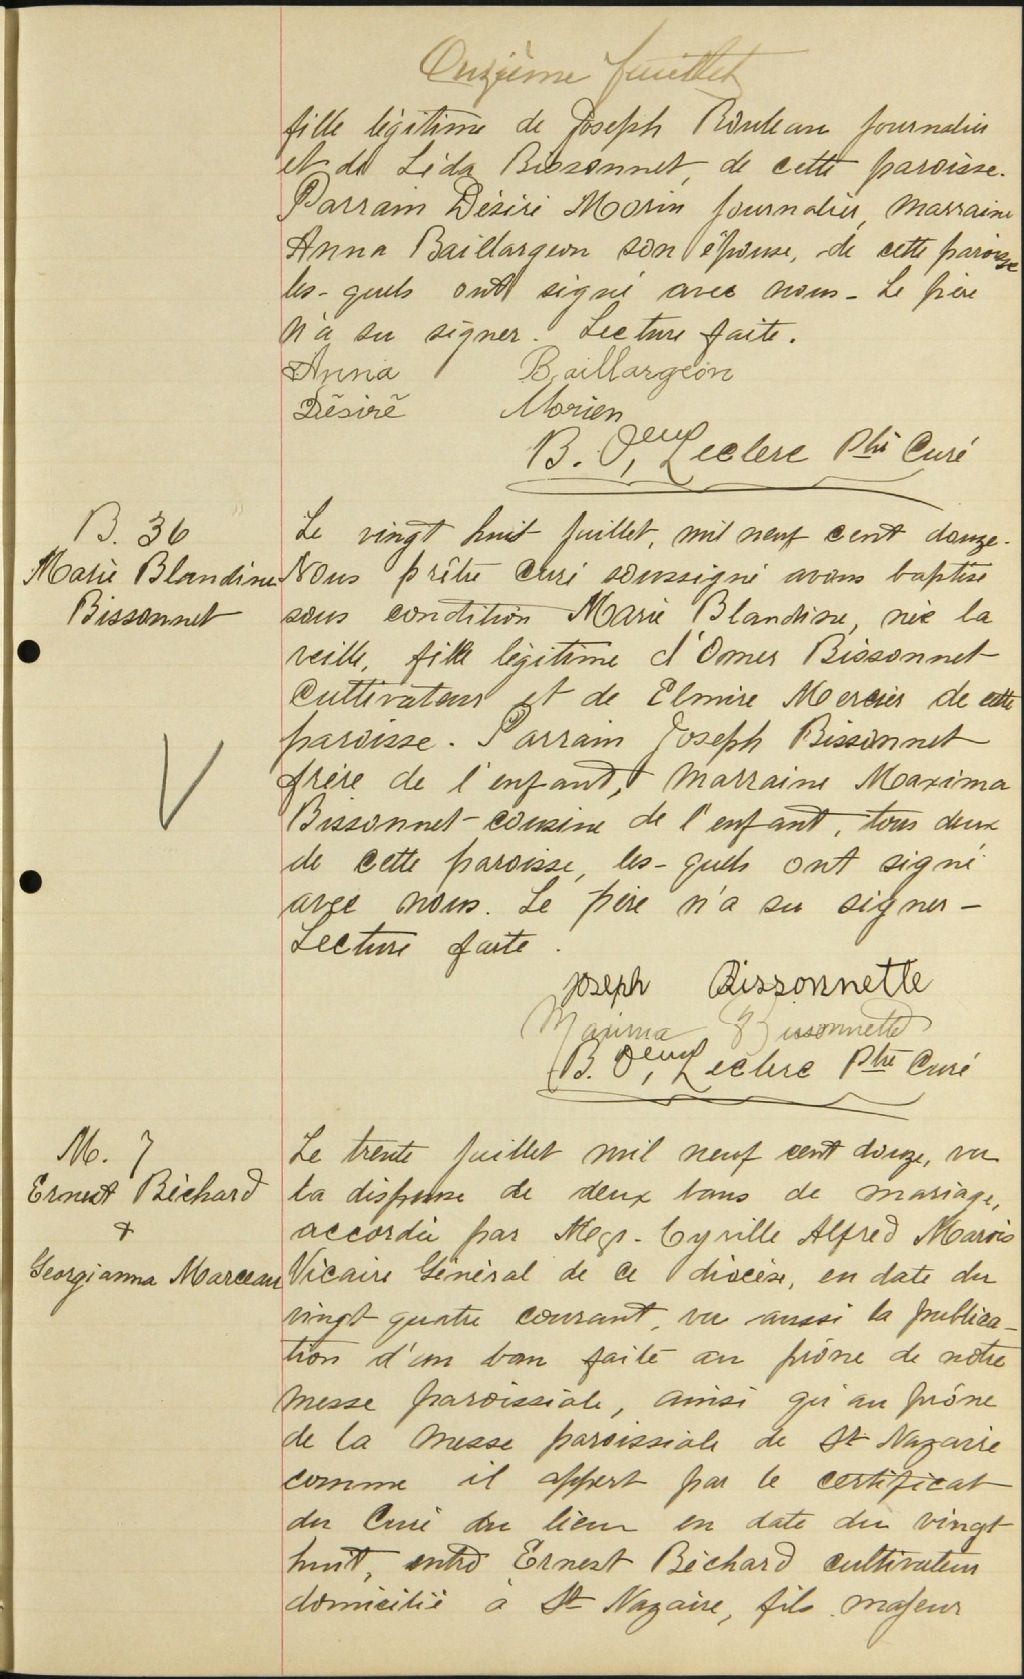 Onzième feuillet
fille légitime de Joseph Rouleau journalier
et de Léda Bissonnet, de cette paroisse.
Parrain Désiré Morin journalier, marraine
Anna Baillargeon son épouse, de cette paroisse
les-quels ont signé avec nous - Le père
n'a su signer. Lecture faite.
Anna Baillargeon
Désiré Morien
B. Leclerc Ptre Curé
B. 36
Marie Blandine
Bissonnet
Le vingt huit juillet, mil neuf cent douze.
Nous prêtre curé soussigné avons baptisé
sous condition Marie Blandine, née la
veille, fille légitime d'Omer Bissonnet
cultivateur et de Elmire Mercier de cette
paroisse. Parrain Joseph Bissonnet
frère de l'enfant, marraine Maxima
Bissonnet cousine de l'enfant, tous deux
de cette paroisse, les-quels ont signé
avec nous. Le père n'a su signer -
Lecture faite.
Joseph Bissonnette
Maxima Bissonnette
B. Leclerc Ptre Curé
M. 7
Ernest Béchard
&
Georgianna Marceau
Le trente juillet mil neuf cent douze, vu
la dispense de deux bans de mariage,
accordée par Megr. Cyrille Alfred Marois
Vicaire Général de ce diocèse, en date du
vingt quatre courant, vu aussi la publica-
tion d'un ban faite au prône de notre
messe paroissiale, ainsi qu'au prône
de la messe paroissiale de St Nazaire
comme il appert par le certificat
du Curé du lieu en date du vingt
huit, entre Ernest Béchard cultivateur
domicilié à St Nazaire, fils majeur